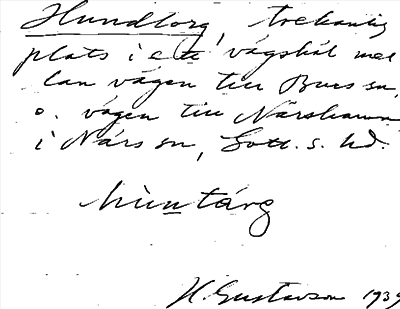 Hundtorg, trekantig
plats i ett vägskäl mel
lan vägen till Burs sn,
o. vägen till Närshamn
i Närs sn, Gotl. s. hd.
hùntárg
H. Gustavson 1939